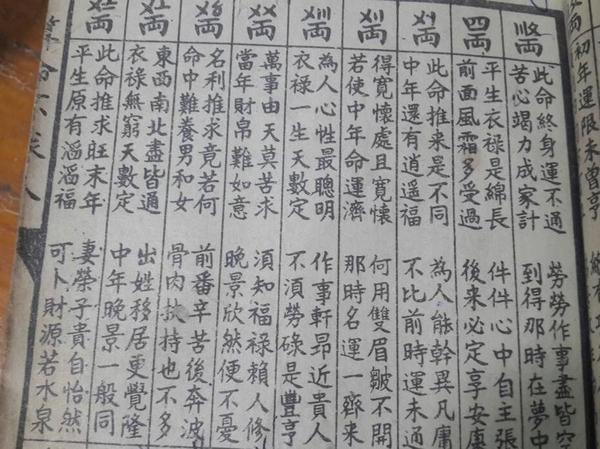 初年運限未曾亨
兩
此命終身運不通　勞勞作事盡皆空
苦心竭力成家計　到得那時在夢中
四両
平生衣祿是綿長　件件心中自主張
前面風霜多受過　後来必定享安康
〤〡両
此命推来是不同　為人能幹異凡庸
中年還有逍遥福　不比前時運未通
〤〢両
得寬懷處且寬懷　何用雙眉皺不開
若使中年命運濟　那時名運一齊来
〤〣両
為人心性最聰明　作事軒昂近貴人
衣祿一生天數定　不須勞碌是豐亨
〤〤両
萬事由天莫苦求　須知福祿賴人修
當年財帛難如意　晚景欣然便不憂
〤〥両
名利推求竟若何　前番辛苦後奔波
命中難養男和女　骨肉扶持也不多
〤〦両
東西南北盡皆通　出姓移居更覺隆
衣祿無窮天數定　中年晚景一般同
〤〧両
此命推求旺末年　妻榮子貴自怡然
平生原有滔滔福　可卜財源若水泉